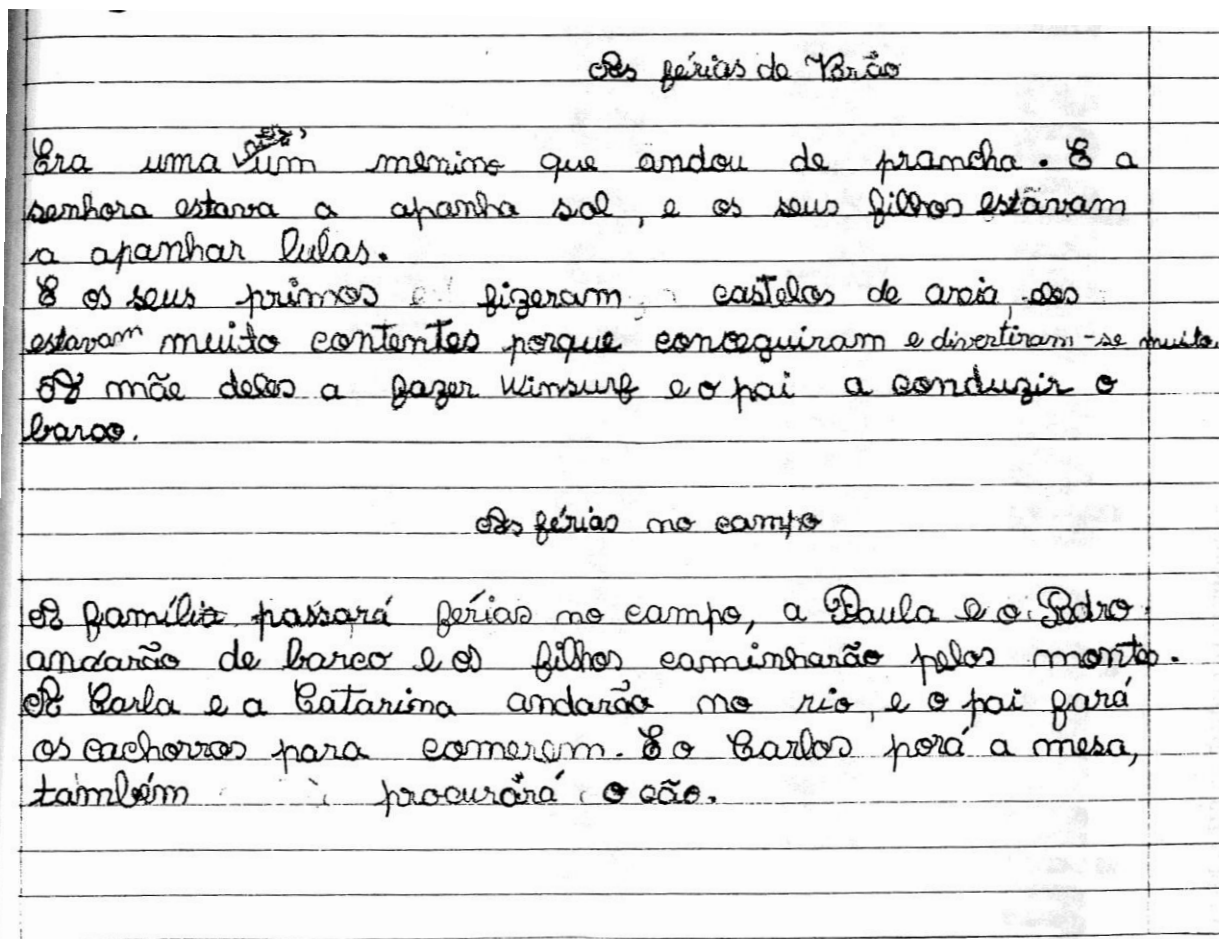 As férias de Vrão
Era uma vez, um menino que andou de prancha. E a
senhora estava a apanha sol, e os seus filhos estavam
a apanhar lulas.
E os seus primos fizeram castelos de areia, eles
estavam muito contentes porque conceguiram e divertiram-se muito.
A mãe deles a fazer winsurf e o pai a conduzir o
barco.
As férias no campo
A família passará férias no campo, a Paula e o Pedro
andarão de barco e os filhos caminharão pelos monts.
A Carla e a Catarina andarão no rio, e o pai fará
os cachorros para comerem. E o Carlos porá a mesa,
também procurará o cão.